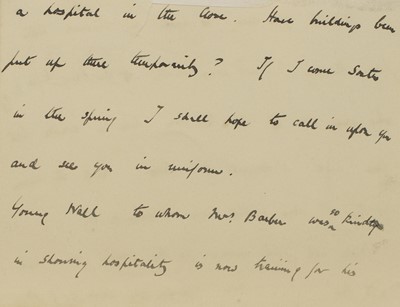 a hospital in the Close. Have buildings been
put up there temporarily? If I come South
in the spring I shall hope to call in upon you
and see you in uniform.
Young Wall to whom Mrs. Barber was so kind
in showing hospitality is now training for his